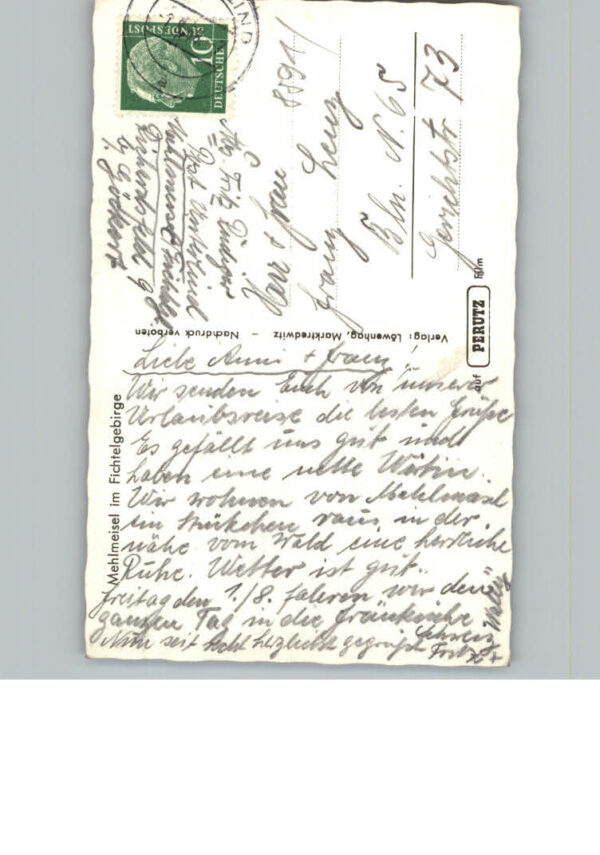 LIND
DEUTSCHE
BUNDESPOST
10
Fritz
Post
Mehlmeisel im Fichtelgebirge
Verlag: Löwenhag, Marktredwitz - Nachdruck verboten
auf PERUTZ Film
Herr & Frau 8591/
Franz Lenz
Bln. N. 65
Gerichtstr 73
Liebe Anni + Franz!
Wir senden Euch von unserer
Urlaubsreise die besten Grüße
Es gefällt uns gut und
haben eine nette Wirtin.
Wir wohnen von Mehlmeisel
ein Stükchen raus, in der
nähe vom Wald eine herrliche
Ruhe. Wetter ist gut.
Freitag den 1/8. fahren wir den
ganzen Tag in die Fränkische
Schweiz
Nun seit herzlichst gegrüßt Fritz +